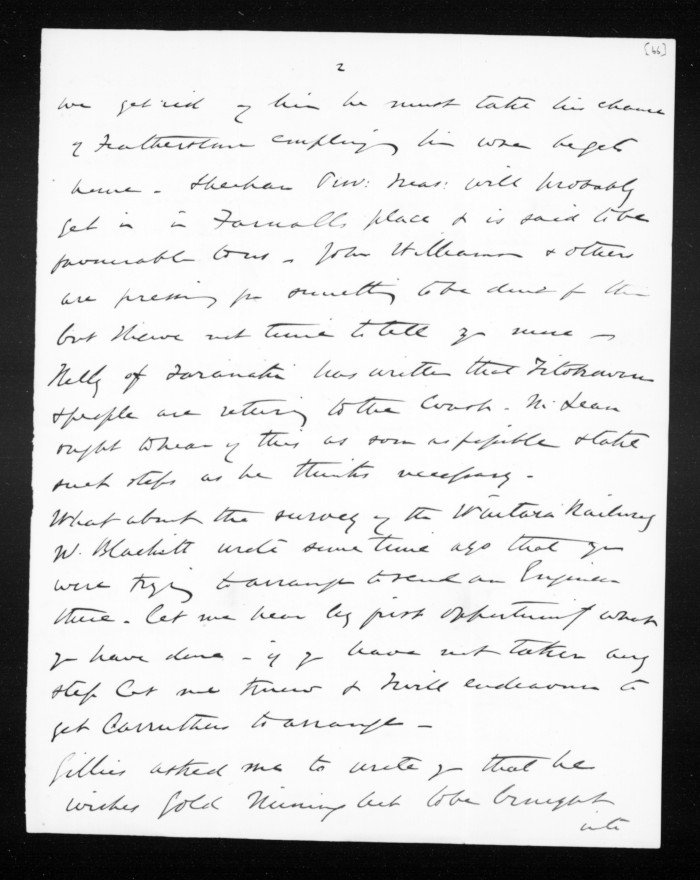 [66]
2
we get rid of him he must take his chance
of Featherston employing him when he gets
home - Sheehan Prov: Mas: will probably
get in in Farnalls place & is said to be
favourable to us - John Williamson & others
are pressing for something to be done for him
but have not time to tell you more -
Kelly of Taranaki has written that Titokowaru
& people are returning to the Coast - McLean
ought to hear of this as soon as possible & take
such steps as he thinks necessary -
What about the survey of the Waitara Railway
W. Blackett wrote some time ago that you
were trying to arrange to send an Engineer
there - Let me hear by first opportunity what
you have done - if you have not taken any
step let me know & I will endeavour to
get Carruthers to arrange -
Gillies asked me to write you that he
wishes Gold Mining Act to be brought
into